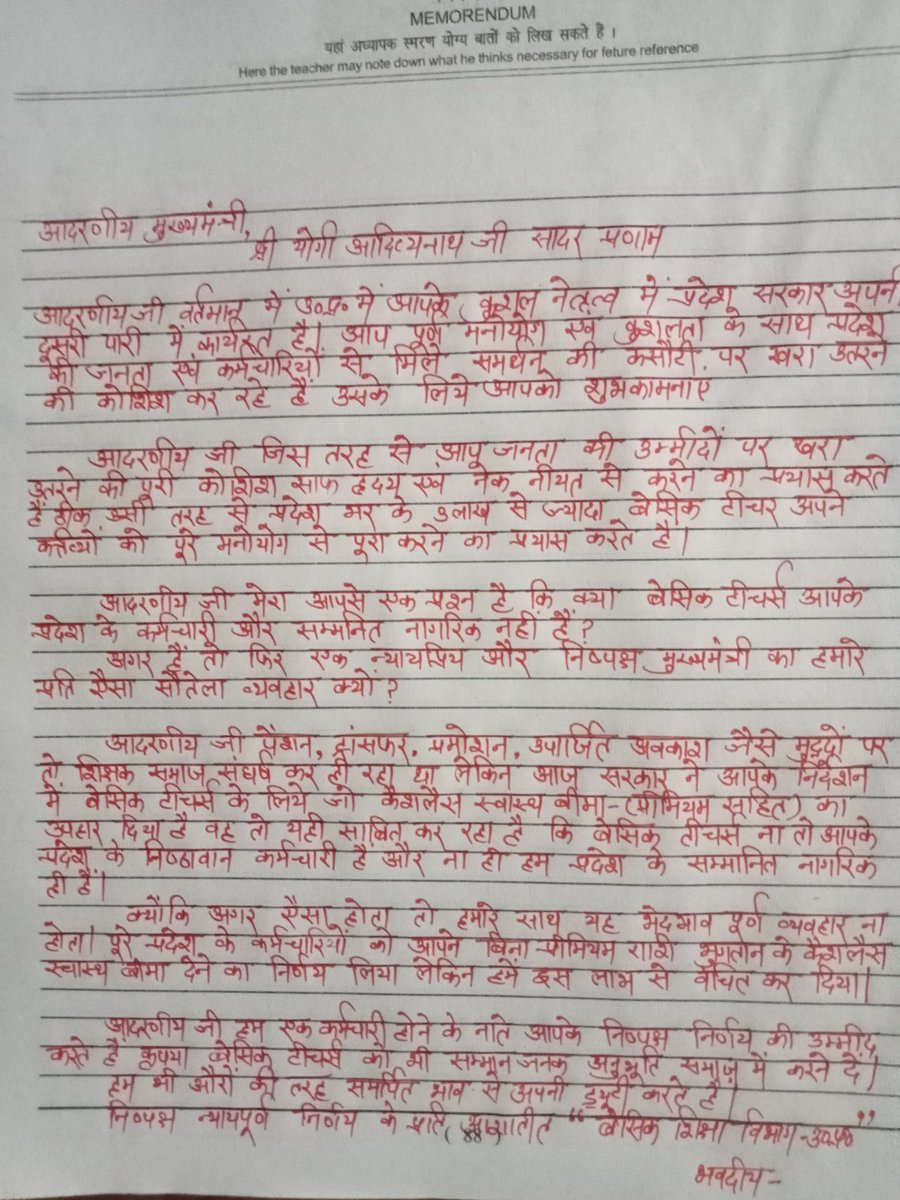 MEMORENDUM
यहां अध्यापक स्मरण योग्य बातों को लिख सकते है ।
Here the teacher may note down what he thinks necessary for feture reference
आदरणीय मुख्यमंत्री,
श्री योगी आदित्यनाथ जी सादर प्रणाम
आदरणीय जी वर्तमान में उ०प्र० में आपके कुशल नेतृत्व में प्रदेश सरकार अपनी
दूसरी पारी में कार्यरत है। आप पूर्ण मनोयोग एवं कुशलता के साथ प्रदेश
की जनता एवं कर्मचारियों से मिले समर्थन की कसौटी पर खरा उतरने
की कोशिश कर रहे हैं उसके लिये आपको शुभकामनाएं
आदरणीय जी जिस तरह से आप जनता की उम्मीदों पर खरा
उतरने की पूरी कोशिश साफ ह्रदय एवं नेक नीयत से करने का प्रयास करते
हैं ठीक उसी तरह से प्रदेश भर के 3लाख से ज्यादा बेसिक टीचर अपने
कर्तव्यों को पूरे मनोयोग से पूरा करने का प्रयास करते है।
आदरणीय जी मेरा आपसे एक प्रश्न है कि क्या बेसिक टीचर्स आपके
प्रदेश के कर्मचारी और सम्मनित नागरिक नहीं हैं?
अगर हैं तो फिर एक न्यायप्रिय और निष्पक्ष मुख्यमंत्री का हमारे
प्रति ऐसा सौतेला व्यवहार क्यों?
आदरणीय जी पेंशन, ट्रांसफर, प्रमोशन, उपार्जित अवकाश जैसे मुद्दों पर
तो शिक्षक समाज संघर्ष कर ही रहा था लेकिन आज सरकार ने आपके निर्देशन
में बेसिक टीचर्स के लिये जो कैशलेस स्वास्थ्य बीमा-(प्रीमियम सहित) का
उपहार दिया है वह तो यही साबित कर रहा है कि बेसिक टीचर्स ना तो आपके
प्रदेश के निष्ठावान कर्मचारी है और ना ही हम प्रदेश के सम्मानित नागरिक
ही हैं।
क्योंकि अगर ऐसा होता तो हमारे साथ यह भेदभाव पूर्ण व्यवहार ना
होता। पूरे प्रदेश के कर्मचारियों को आपने बिना प्रीमियम राशि भुगतान के कैशलैस
स्वास्थ बीमा देने का निर्णय लिया लेकिन हमें इस लाभ से वंचित कर दिया।
आदरणीय जी हम एक कर्मचारी होने के नाते आपके निष्पक्ष निर्णय की उम्मीद
करते हैं कृपया बेसिक टीचर्स को भी सम्मान जनक अनुभूति समाज में करने दें।
हम भी औरों की तरह समर्पित भाव से अपनी ड्यूटी करते है।
निष्पक्ष न्यायपूर्ण निर्णय के प्रति आशातीत "बेसिक शिक्षा विभाग-उ०प्र०"
( 88 )
भवदीय-